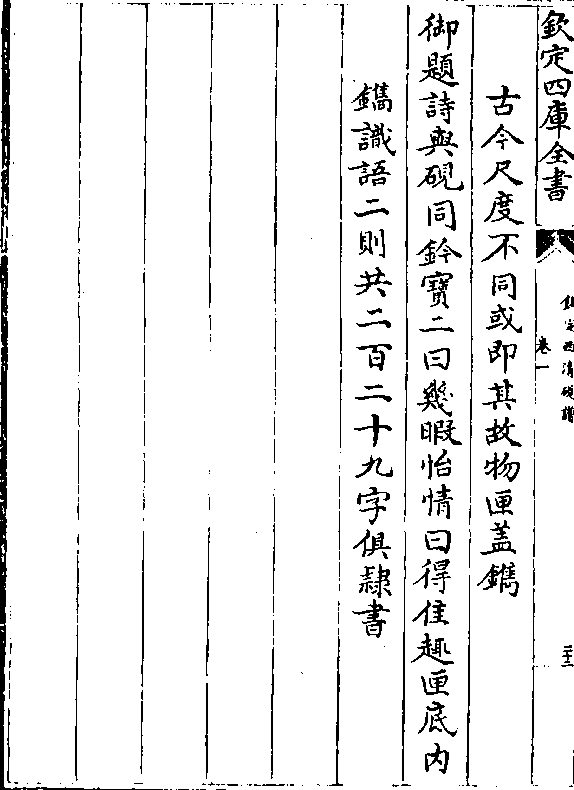 欽定四庫全書
欽定西清硯譜
卷一
二十二
古今尺度不同或即其故物匣蓋鐫
御題詩與硯同鈐寳二曰㡬暇怡情曰得佳趣匣底内
鐫識語二則共二百二十九字俱隸書